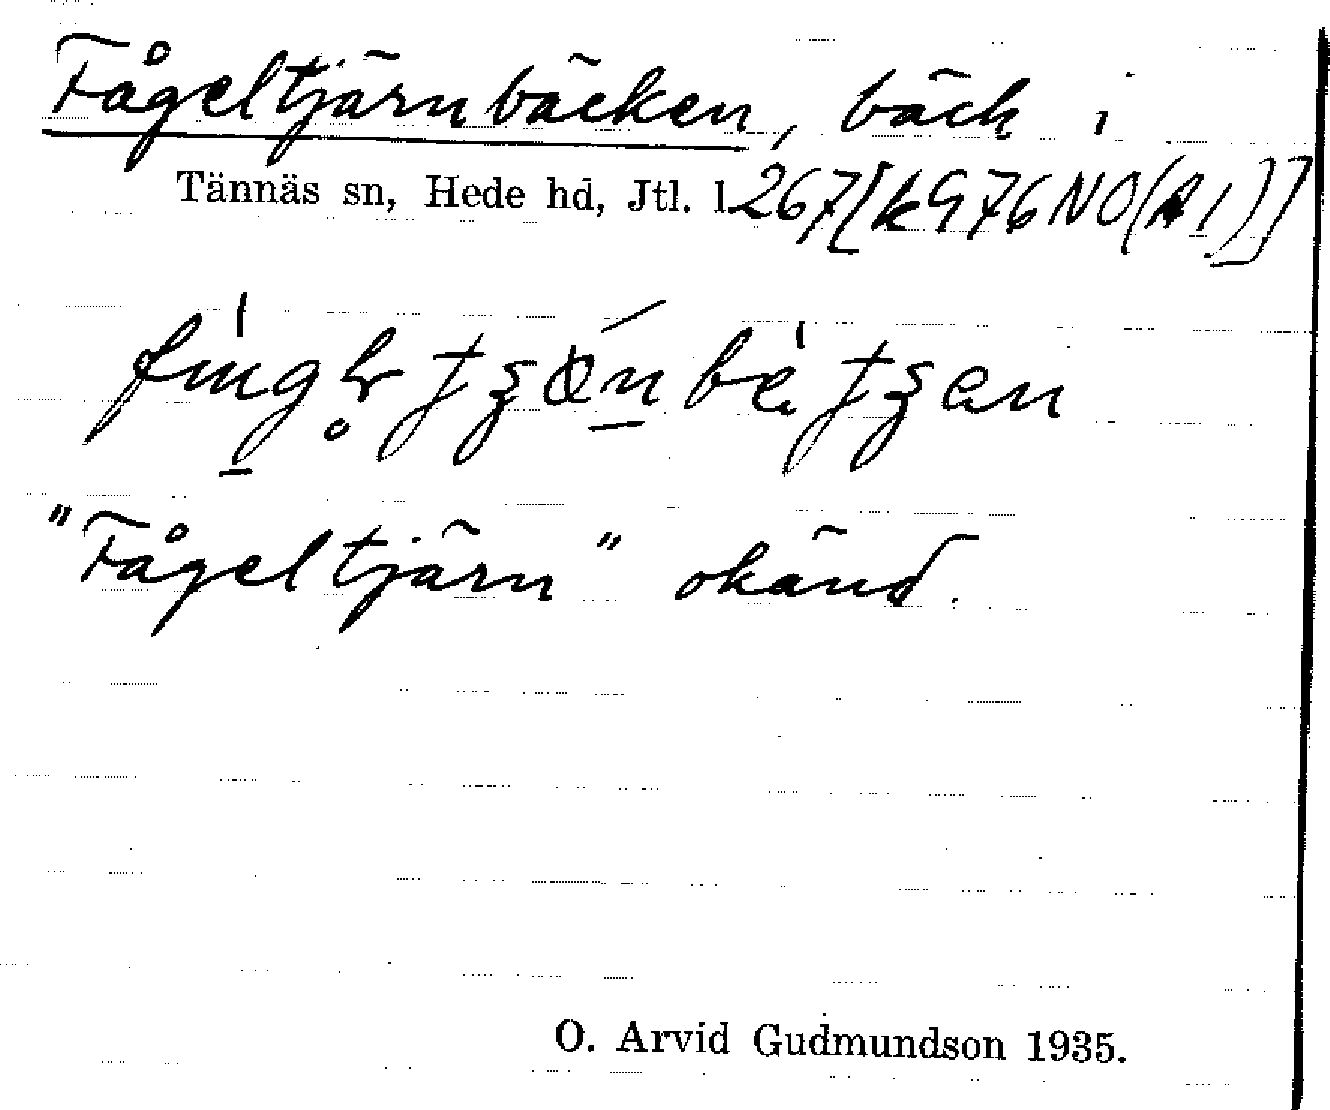 Fågeltjärnbäcken, bäck i
Tännäs sn, Hede hd, Jtl. l. 267[k976NO(A1)]
"Fågeltjärn" okänd.
O. Arvid Gudmundson 1935.